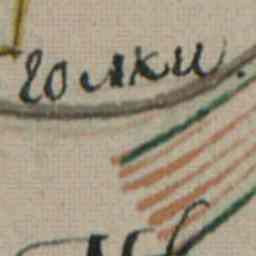 голки.